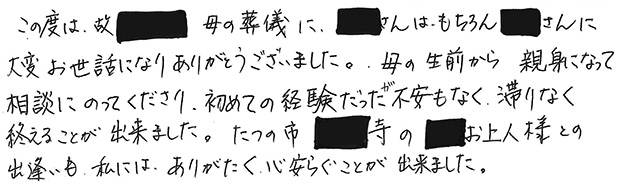 この度は、故 母の葬儀に、 さんは、もちろん さんに
大変お世話になりありがとうございました。母の生前から 親身になって
相談にのってくださり、初めての経験だったが不安もなく、滞りなく
終えることが出来ました。たつの市 寺の お上人様との
出逢いも、私には、ありがたく、心安らぐことが出来ました。